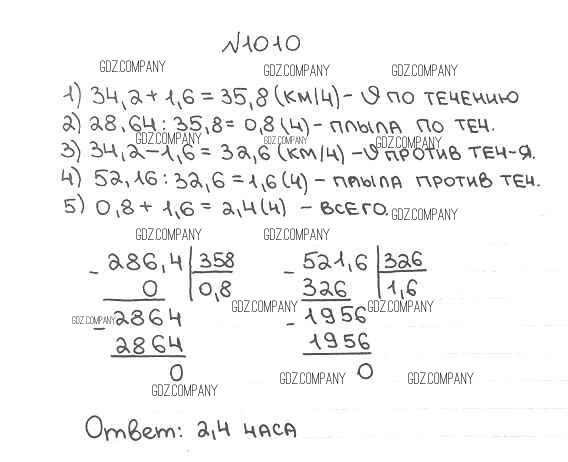 №1010
GDZ.COMPANY GDZ.COMPANY GDZ.COMPANY
1) 34,2 + 1,6 = 35,8 (км/ч) – υ по течению
2) 28,64 : 35,8 = 0,8 (ч) – плыла по теч.
GDZ.COMPANY GDZ.COMPANY GDZ.COMPANY
3) 34,2 – 1,6 = 32,6 (км/ч) – υ против теч-я.
4) 52,16 : 32,6 = 1,6 (ч) – плыла против теч.
5) 0,8 + 1,6 = 2,4 (ч) – всего.
GDZ.COMPANY
GDZ.COMPANY GDZ.COMPANY
- 286,4 | 358
0 0,8
- 2864
2864
0
- 521,6 | 326
326 1,6
- 1956
1956
0
GDZ.COMPANY GDZ.COMPANY
GDZ.COMPANY
GDZ.COMPANY GDZ.COMPANY
GDZ.COMPANY
Ответ: 2,4 часа